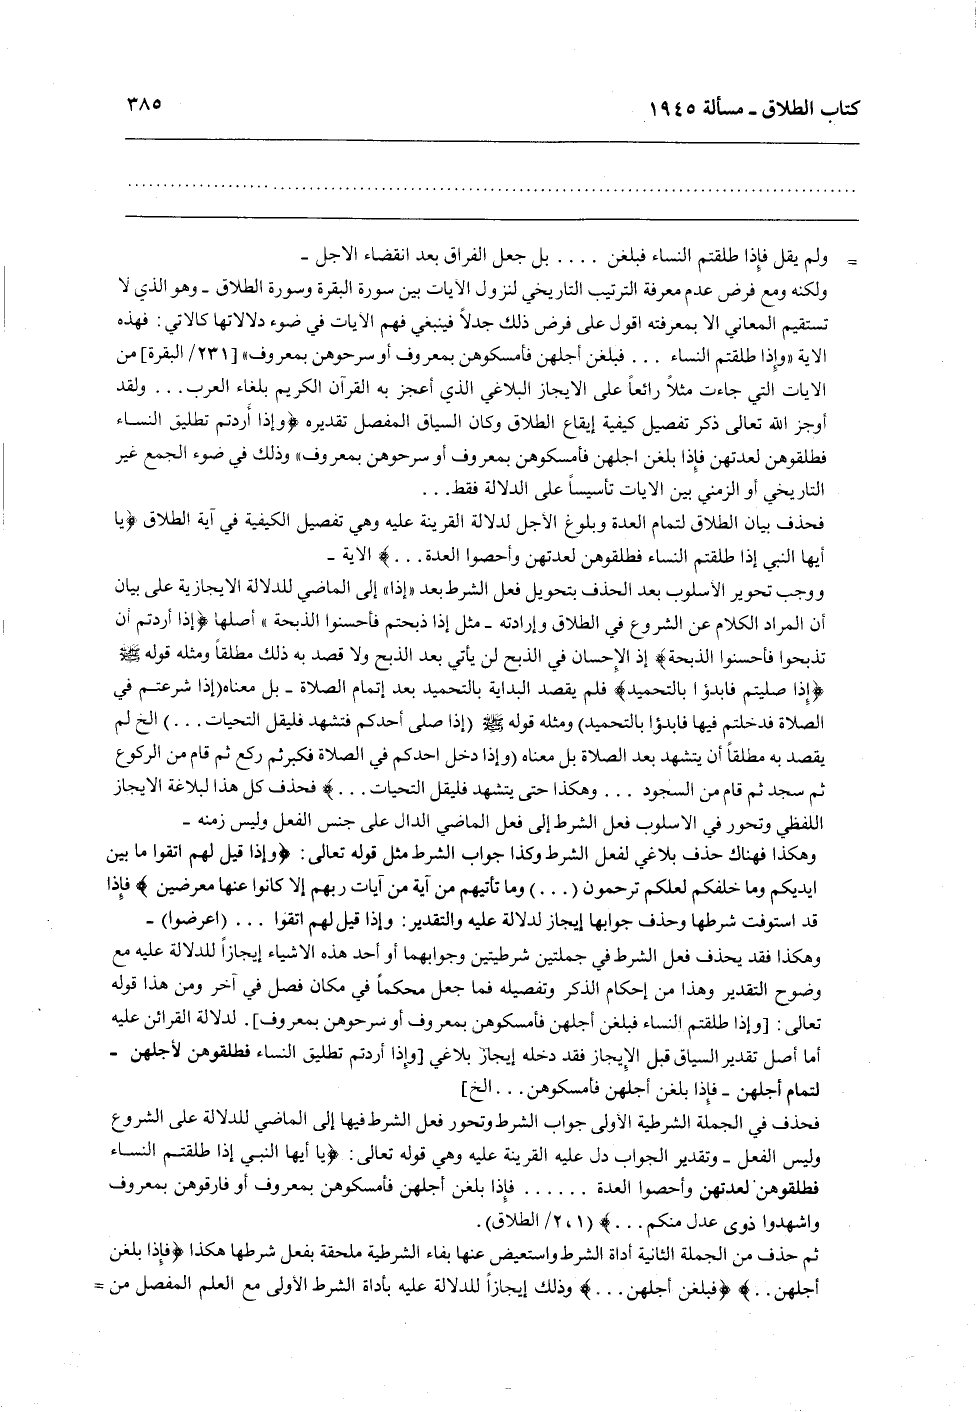 كتاب الطلاق ـ مسألة ١٩٤٥
٣٨٥
= ولم يقل فإذا طلقتم النساء فبلغن .... بل جعل الفراق بعد انقضاء الاجل ـ
ولكنه ومع فرض عدم معرفة الترتيب التاريخي لنزول الآيات بين سورة البقرة وسورة الطلاق ـ وهو الذي لا
تستقيم المعاني الا بمعرفته اقول على فرض ذلك جدلاً فينبغي فهم الآيات في ضوء دلالاتها كالاتي: فهذه
الاية «وإذا طلقتم النساء ... فبلغن أجلهن فأمسكوهن بمعروف أو سرحوهن بمعروف» [٢٣١/ البقرة] من
الايات التي جاءت مثلاً رائعاً على الايجاز البلاغي الذي أعجز به القرآن الكريم بلغاء العرب... ولقد
أوجز الله تعالى ذكر تفصيل كيفية إيقاع الطلاق وكان السياق المفصل تقديره ﴿وإذا أردتم تطليق النساء
فطلقوهن لعدتهن فإذا بلغن اجلهن فأمسكوهن بمعروف أو سرحوهن بمعروف» وذلك في ضوء الجمع غير
التاريخي أو الزمني بين الايات تأسيساً على الدلالة فقط...
فحذف بيان الطلاق لتمام العدة وبلوغ الأجل لدلالة القرينة عليه وهي تفصيل الكيفية في آية الطلاق ﴿يا
أيها النبي إذا طلقتم النساء فطلقوهن لعدتهن وأحصوا العدة...﴾ الاية ـ
ووجب تحوير الأسلوب بعد الحذف بتحويل فعل الشرط بعد «إذا» إلى الماضي للدلالة الايجازية على بيان
أن المراد الكلام عن الشروع في الطلاق وإرادته ـ مثل إذا ذبحتم فأحسنوا الذبحة» أصلها ﴿إذا أردتم أن
تذبحوا فأحسنوا الذبحة﴾ إذ الإحسان في الذبح لن يأتي بعد الذبح ولا قصد به ذلك مطلقاً ومثله قوله ﷺ
﴿إذا صليتم فابدؤا بالتحميد﴾ فلم يقصد البداية بالتحميد بعد إتمام الصلاة ـ بل معناه(إذا شرعتم في
الصلاة فدخلتم فيها فابدؤا بالتحميد) ومثله قوله ﷺ (إذا صلى أحدكم فتشهد فليقل التحيات...) الخ لم
يقصد به مطلقاً أن يتشهد بعد الصلاة بل معناه (وإذا دخل احدكم في الصلاة فكبر ثم ركع ثم قام من الركوع
ثم سجد ثم قام من السجود ... وهكذا حتى يتشهد فليقل التحيات...﴾ فحذف كل هذا لبلاغة الايجاز
اللفظي وتحور في الاسلوب فعل الشرط إلى فعل الماضي الدال على جنس الفعل وليس زمنه ـ
وهكذا فهناك حذف بلاغي لفعل الشرط وكذا جواب الشرط مثل قوله تعالى: ﴿وإذا قيل لهم اتقوا ما بين
ايديكم وما خلفكم لعلكم ترحمون (...) وما تأتيهم من آية من آيات ربهم إلا كانوا عنها معرضين ﴾ فإذا
قد استوفت شرطها وحذف جوابها إيجاز لدلالة عليه والتقدير: وإذا قيل لهم اتقوا ... (اعرضوا) ـ
وهكذا فقد يحذف فعل الشرط في جملتين شرطيتين وجوابهما أو أحد هذه الاشياء إيجازاً للدلالة عليه مع
وضوح التقدير وهذا من إحكام الذكر وتفصيله فما جعل محكماً في مكان فصل في آخر ومن هذا قوله
تعالى: [وإذا طلقتم النساء فبلغن أجلهن فأمسكوهن بمعروف أو سرحوهن بمعروف]. لدلالة القرائن عليه
أما أصل تقدير السياق قبل الإيجاز فقد دخله إيجاز بلاغي [وإذا أردتم تطليق النساء فطلقوهن لأجلهن ـ
لتمام أجلهن ـ فإذا بلغن أجلهن فأمسكوهن...الخ]
فحذف في الجملة الشرطية الأولى جواب الشرط وتحور فعل الشرط فيها إلى الماضي للدلالة على الشروع
وليس الفعل ـ وتقدير الجواب دل عليه القرينة عليه وهي قوله تعالى: ﴿يا أيها النبي إذا طلقتم النساء
فطلقوهن لعدتهن وأحصوا العدة ...... فإذا بلغن أجلهن فأمسكوهن بمعروف أو فارقوهن بمعروف
واشهدوا ذوى عدل منكم...﴾ (٢،١/ الطلاق).
ثم حذف من الجملة الثانية أداة الشرط واستعيض عنها بفاء الشرطية ملحقة بفعل شرطها هكذا ﴿فإذا بلغن
أجلهن..﴾ ﴿فبلغن أجلهن...﴾ وذلك إيجازاً للدلالة عليه بأداة الشرط الأولى مع العلم المفصل من =